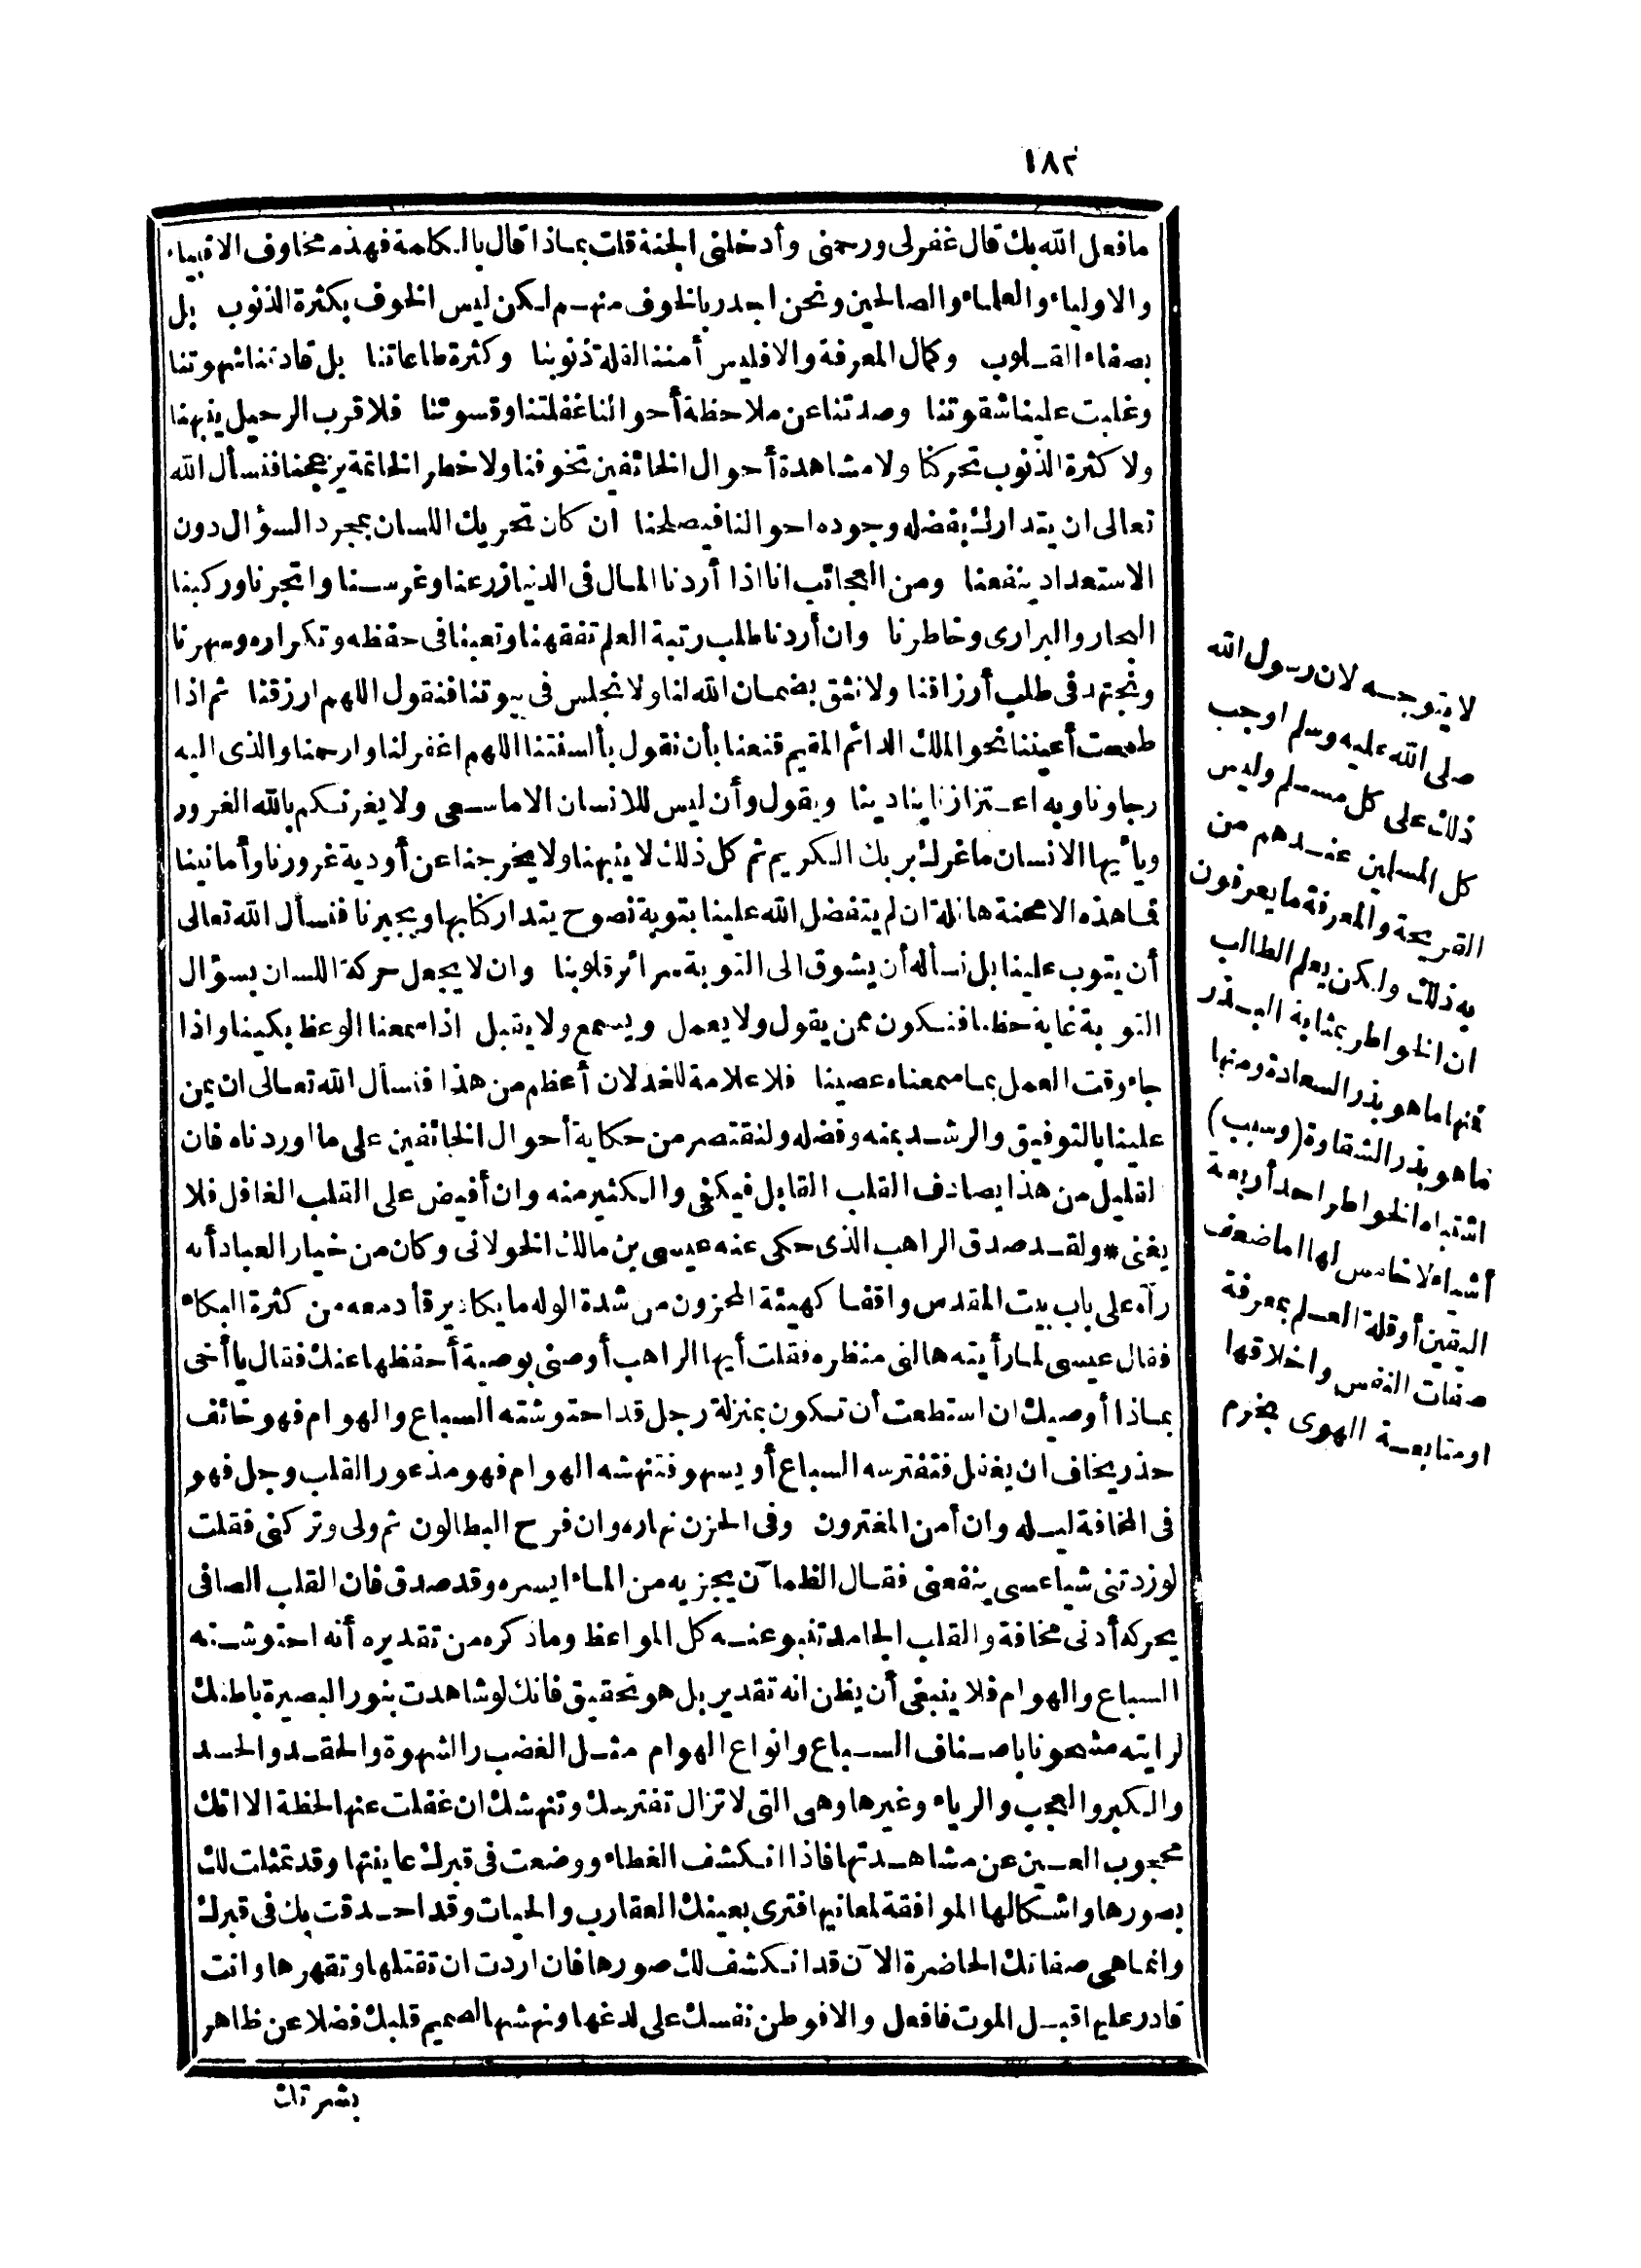 ١٨٢
ما فعل الله بك قال غفر لى ورحمنى وأدخلنى الجنة قلت بماذا قال بالكلمة فهذه مخاوف الانبياء
والاولياء والعلماء والصالحين ونحن اجدر بالخوف منهم لكن ليس الخوف بكثرة الذنوب بل
بصفاء القلوب وكمال المعرفة والا فليس أمننا لقلة ذنوبنا وكثرة طاعاتنا بل قادتنا شهوتنا
وغلبت علينا شقوتنا وصدتنا عن ملاحظة أحوالنا غفلتنا وقسوتنا فلا قرب الرحيل ينبهنا
ولا كثرة الذنوب تحركنا ولا مشاهدة أحوال الخائفين تخوفنا ولا خطر الخاتمة يزعجنا فنسأل الله
تعالى ان يتدارك بفضله وجوده احوالنا فيصلحنا ان كان تحريك اللسان بمجرد السؤال دون
الاستعداد ينفعنا ومن العجائب انا اذا أردنا المال فى الدنيا زرعنا وغرسنا واتجرنا وركبنا
البحار والبرارى وخاطرنا وان أردنا طلب رتبة العلم تفقهنا وتعبنا فى حفظه وتكراره وسهرنا
ونجتهد فى طلب أرزاقنا ولا نثق بضمان الله لنا ولا نجلس فى بيوتنا فنقول اللهم ارزقنا ثم اذا
طمحت أعيننا نحو الملك الدائم المقيم قنعنا بأن نقول بألسنتنا اللهم اغفر لنا وارحمنا والذى اليه
رجاونا وبه اعتزازنا ينادينا ويقول وأن ليس للانسان الا ما سعى ولا يغرنكم بالله الغرور
ويا أيها الانسان ما غرك بربك الكريم ثم كل ذلك لا ينبهنا ولا يخرجنا عن أودية غرورنا وأمانينا
فما هذه الا محنة هائلة ان لم يتفضل الله علينا بتوبة نصوح يتداركنا بها ويجبرنا فنسأل الله تعالى
أن يتوب علينا بل نسأله أن يشوق الى التوبة سرائر قلوبنا وان لا يجعل حركة اللسان بسؤال
التوبة غاية حظنا فنكون ممن يقول ولا يعمل ويسمع ولا يقبل اذا سمعنا الوعظ بكينا واذا
جاء وقت العمل بما سمعناه عصينا فلا علامة للخذلان أعظم من هذا فنسأل الله تعالى ان يمن
علينا بالتوفيق والرشد بمنه وفضله ولنقتصر من حكاية أحوال الخائفين على ما اوردناه فان
لقليل من هذا يصادف القلب القابل فيكفى والكثير منه وان أفيض على القلب الغافل فلا
يغنى * ولقد صدق الراهب الذى حكى عنه عيسى بن مالك الخولانى وكان من خيار العباد أنه
رآه على باب بيت المقدس واقفا كهيئة المحزون من شدة الوله ما يكاد يرقأ دمعه من كثرة البكاء
فقال عيسى لما رأيته هالنى منظره فقلت أيها الراهب أوصنى بوصية أحفظها عنك فقال يا أخى
بماذا أوصيك ان استطعت أن تكون بمنزلة رجل قد احتوشته السباع والهوام فهو خائف
حذر يخاف ان يغفل فتفترسه السباع أو يسهو فتنهشه الهوام فهو مذعور القلب وجل فهو
فى المخافة ليله وان أمن المغترون وفى الحزن نهاره وان فرح البطالون ثم ولى وتركنى فقلت
لو زدتنى شيا عسى ينفعنى فقال الظمآن يجزيه من الماء ايسره وقد صدق فان القلب الصافى
يحركه أدنى مخافة والقلب الجامد تنبو عنه كل المواعظ وما ذكره من تقديره أنه احتوشته
السباع والهوام فلا ينبغى أن يظن انه تقدير بل هو تحقيق فانك لو شاهدت بنور البصيرة باطنك
لرايته مشحونا باصناف السباع وانواع الهوام مثل الغضب والشهوة والحقد والحسد
والكبر والعجب والرياء وغيرها وهى التى لا تزال تفترسك وتنهشك ان غفلت عنها لحظة الا انك
محجوب العين عن مشاهدتها فاذا انكشف الغطاء ووضعت فى قبرك عاينتها وقد تمثلت لك
بصورها واشكالها الموافقة لمعانيها فترى بعينك العقارب والحيات وقد احدقت بك فى قبرك
وانما هى صفاتك الحاضرة الآن قد انكشف لك صورها فان اردت ان تقتلها وتقهرها وانت
قادر عليها قبل الموت فافعل والا فوطن نفسك على لدغها ونهشها لصميم قلبك فضلا عن ظاهر
بشرتك
لا يتوجه لان رسول الله
صلى الله عليه وسلم اوجب
ذلك على كل مسلم وليس
كل المسلمين عندهم من
القريحة والمعرفة ما يعرفون
به ذلك ولكن يعلم الطالب
ان الخواطر بمثابة البذر
فمنها ما هو بذر السعادة ومنها
ما هو بذر الشقاوة (وسبب)
اشتباه الخواطر احد أربعة
أشياء لا خامس لها اما ضعف
اليقين أو قلة العلم بمعرفة
صفات النفس واخلاقها
او متابعة الهوى بخرم